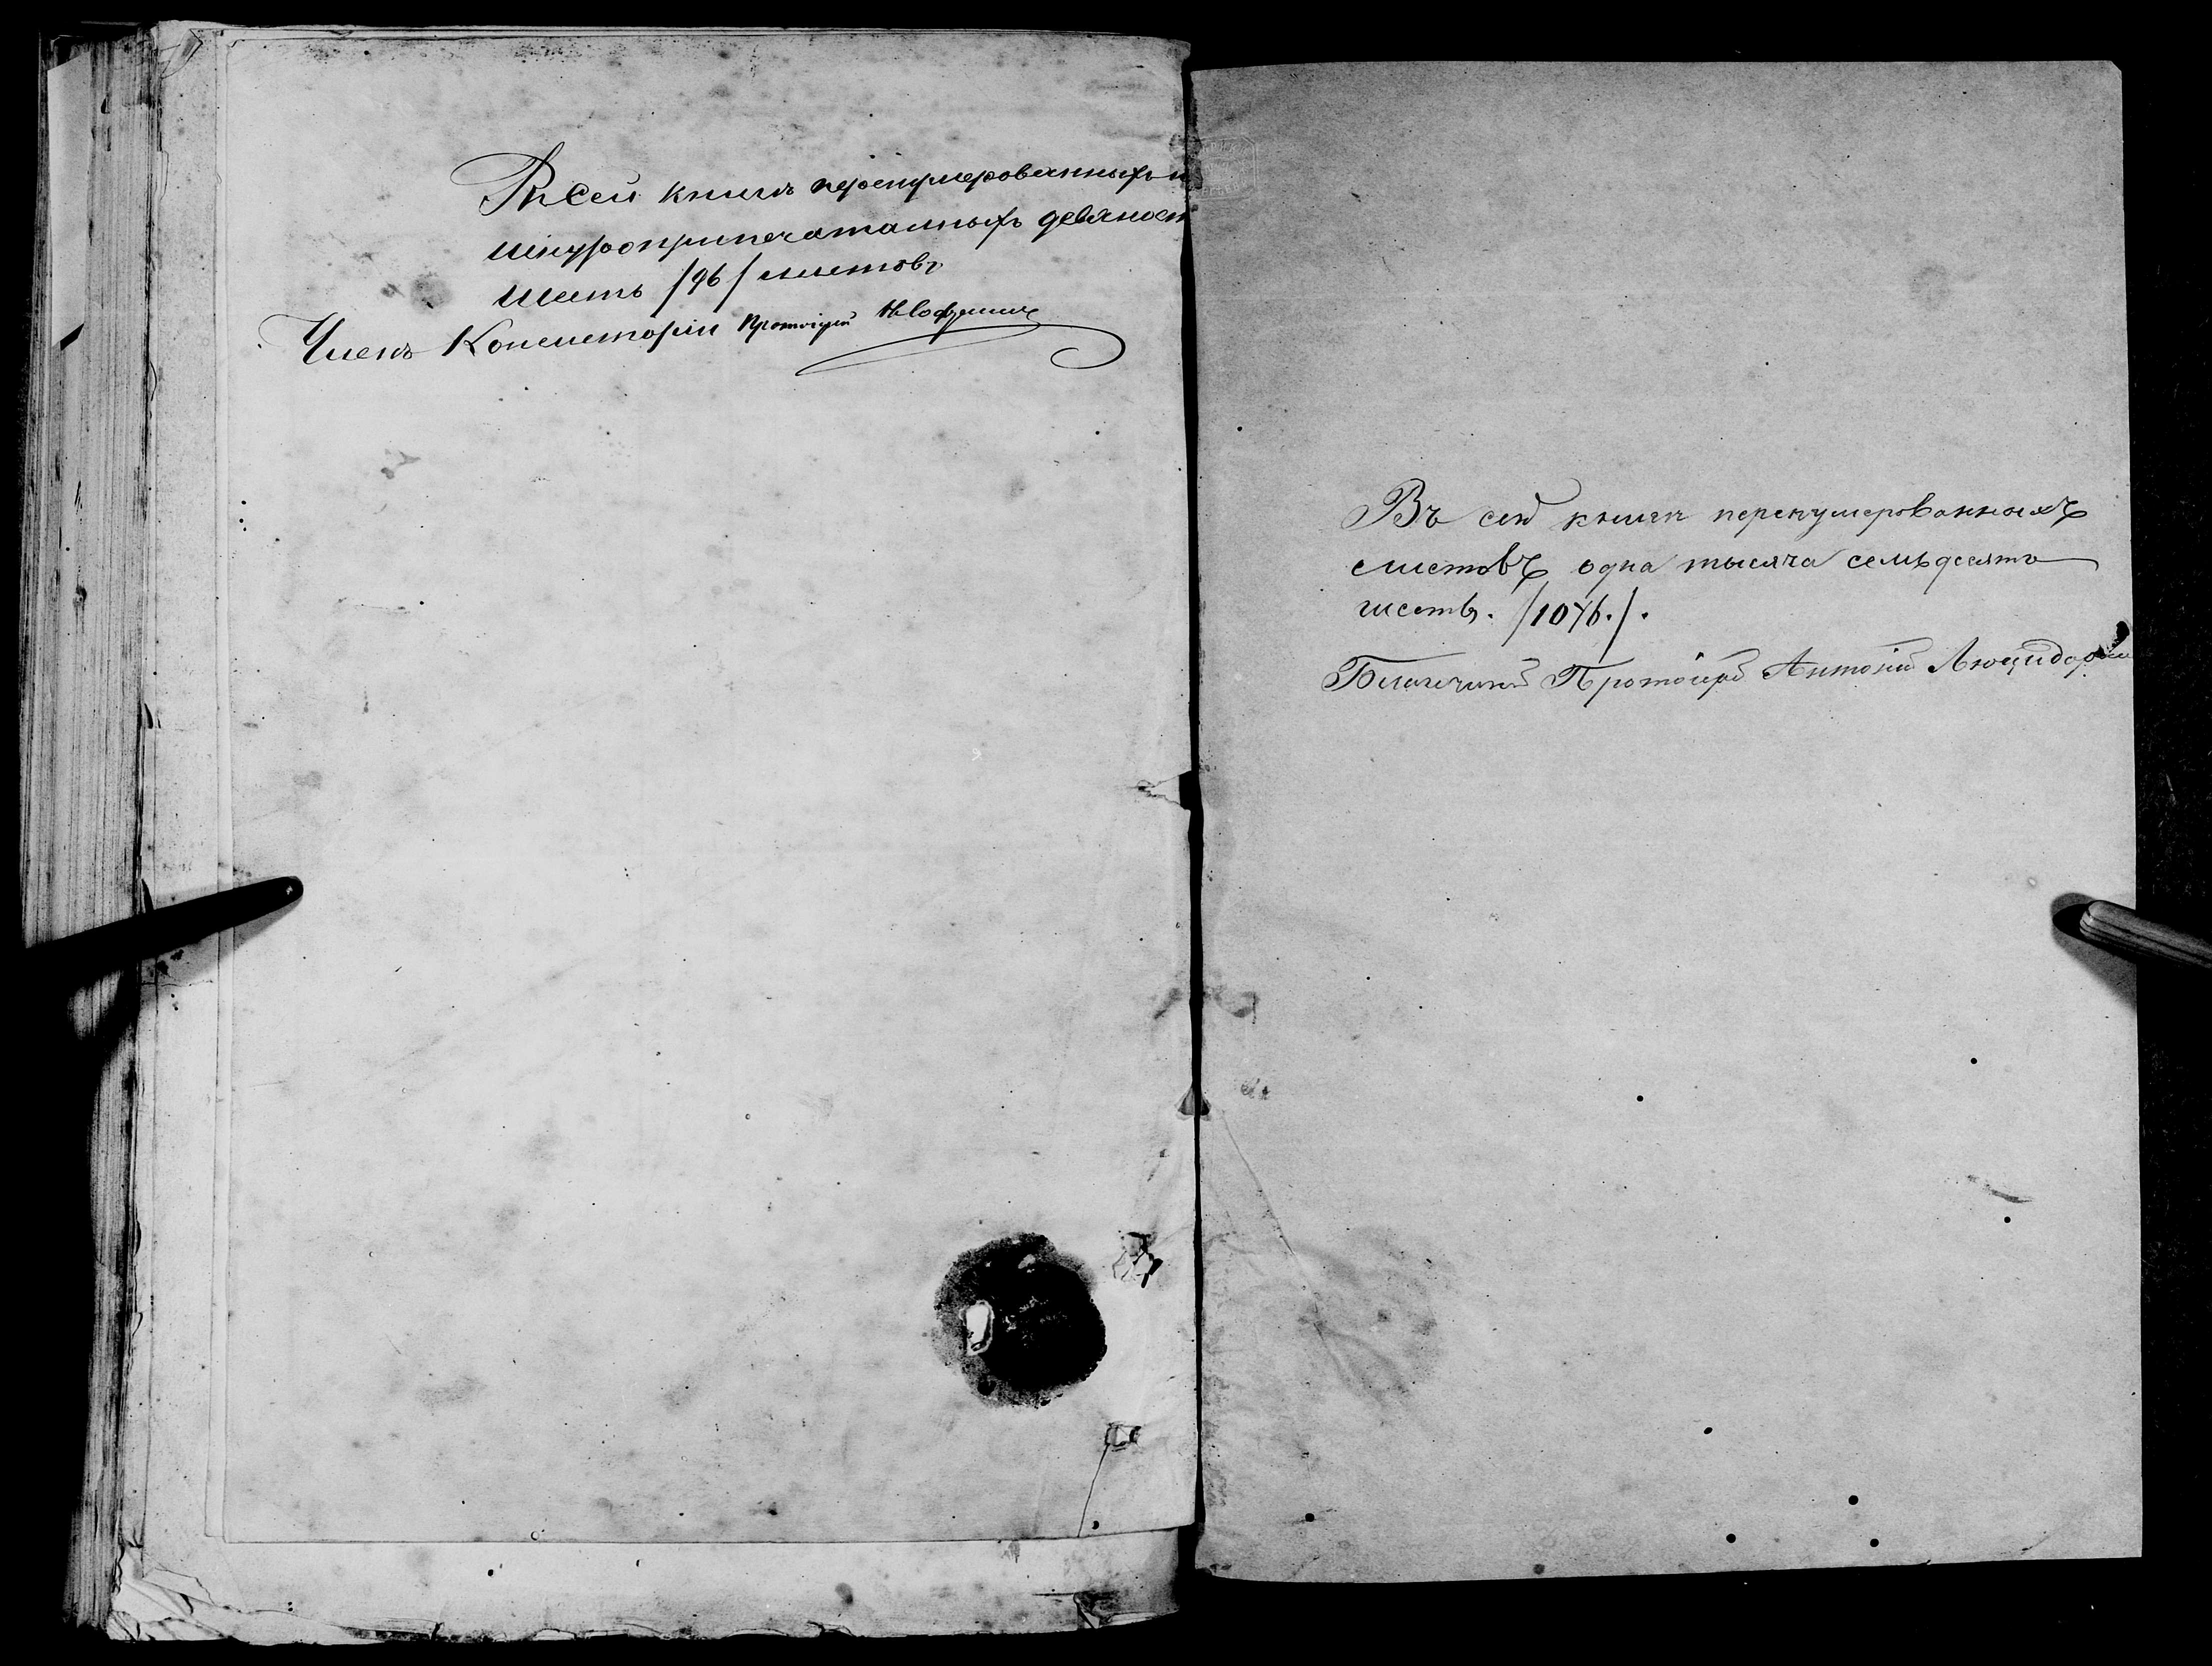 Въ сей книгѣ перенумерованныхъ и
шнуроприпечатанныхъ девяност
шесть /96/ листовъ
Членъ Консисторіи Протоіерей
Въ сей книги перенумерованныхъ
листовъ одна тысяча семьдесятъ
шесть. /1076./.
Благочиный Протоіерей Антоній